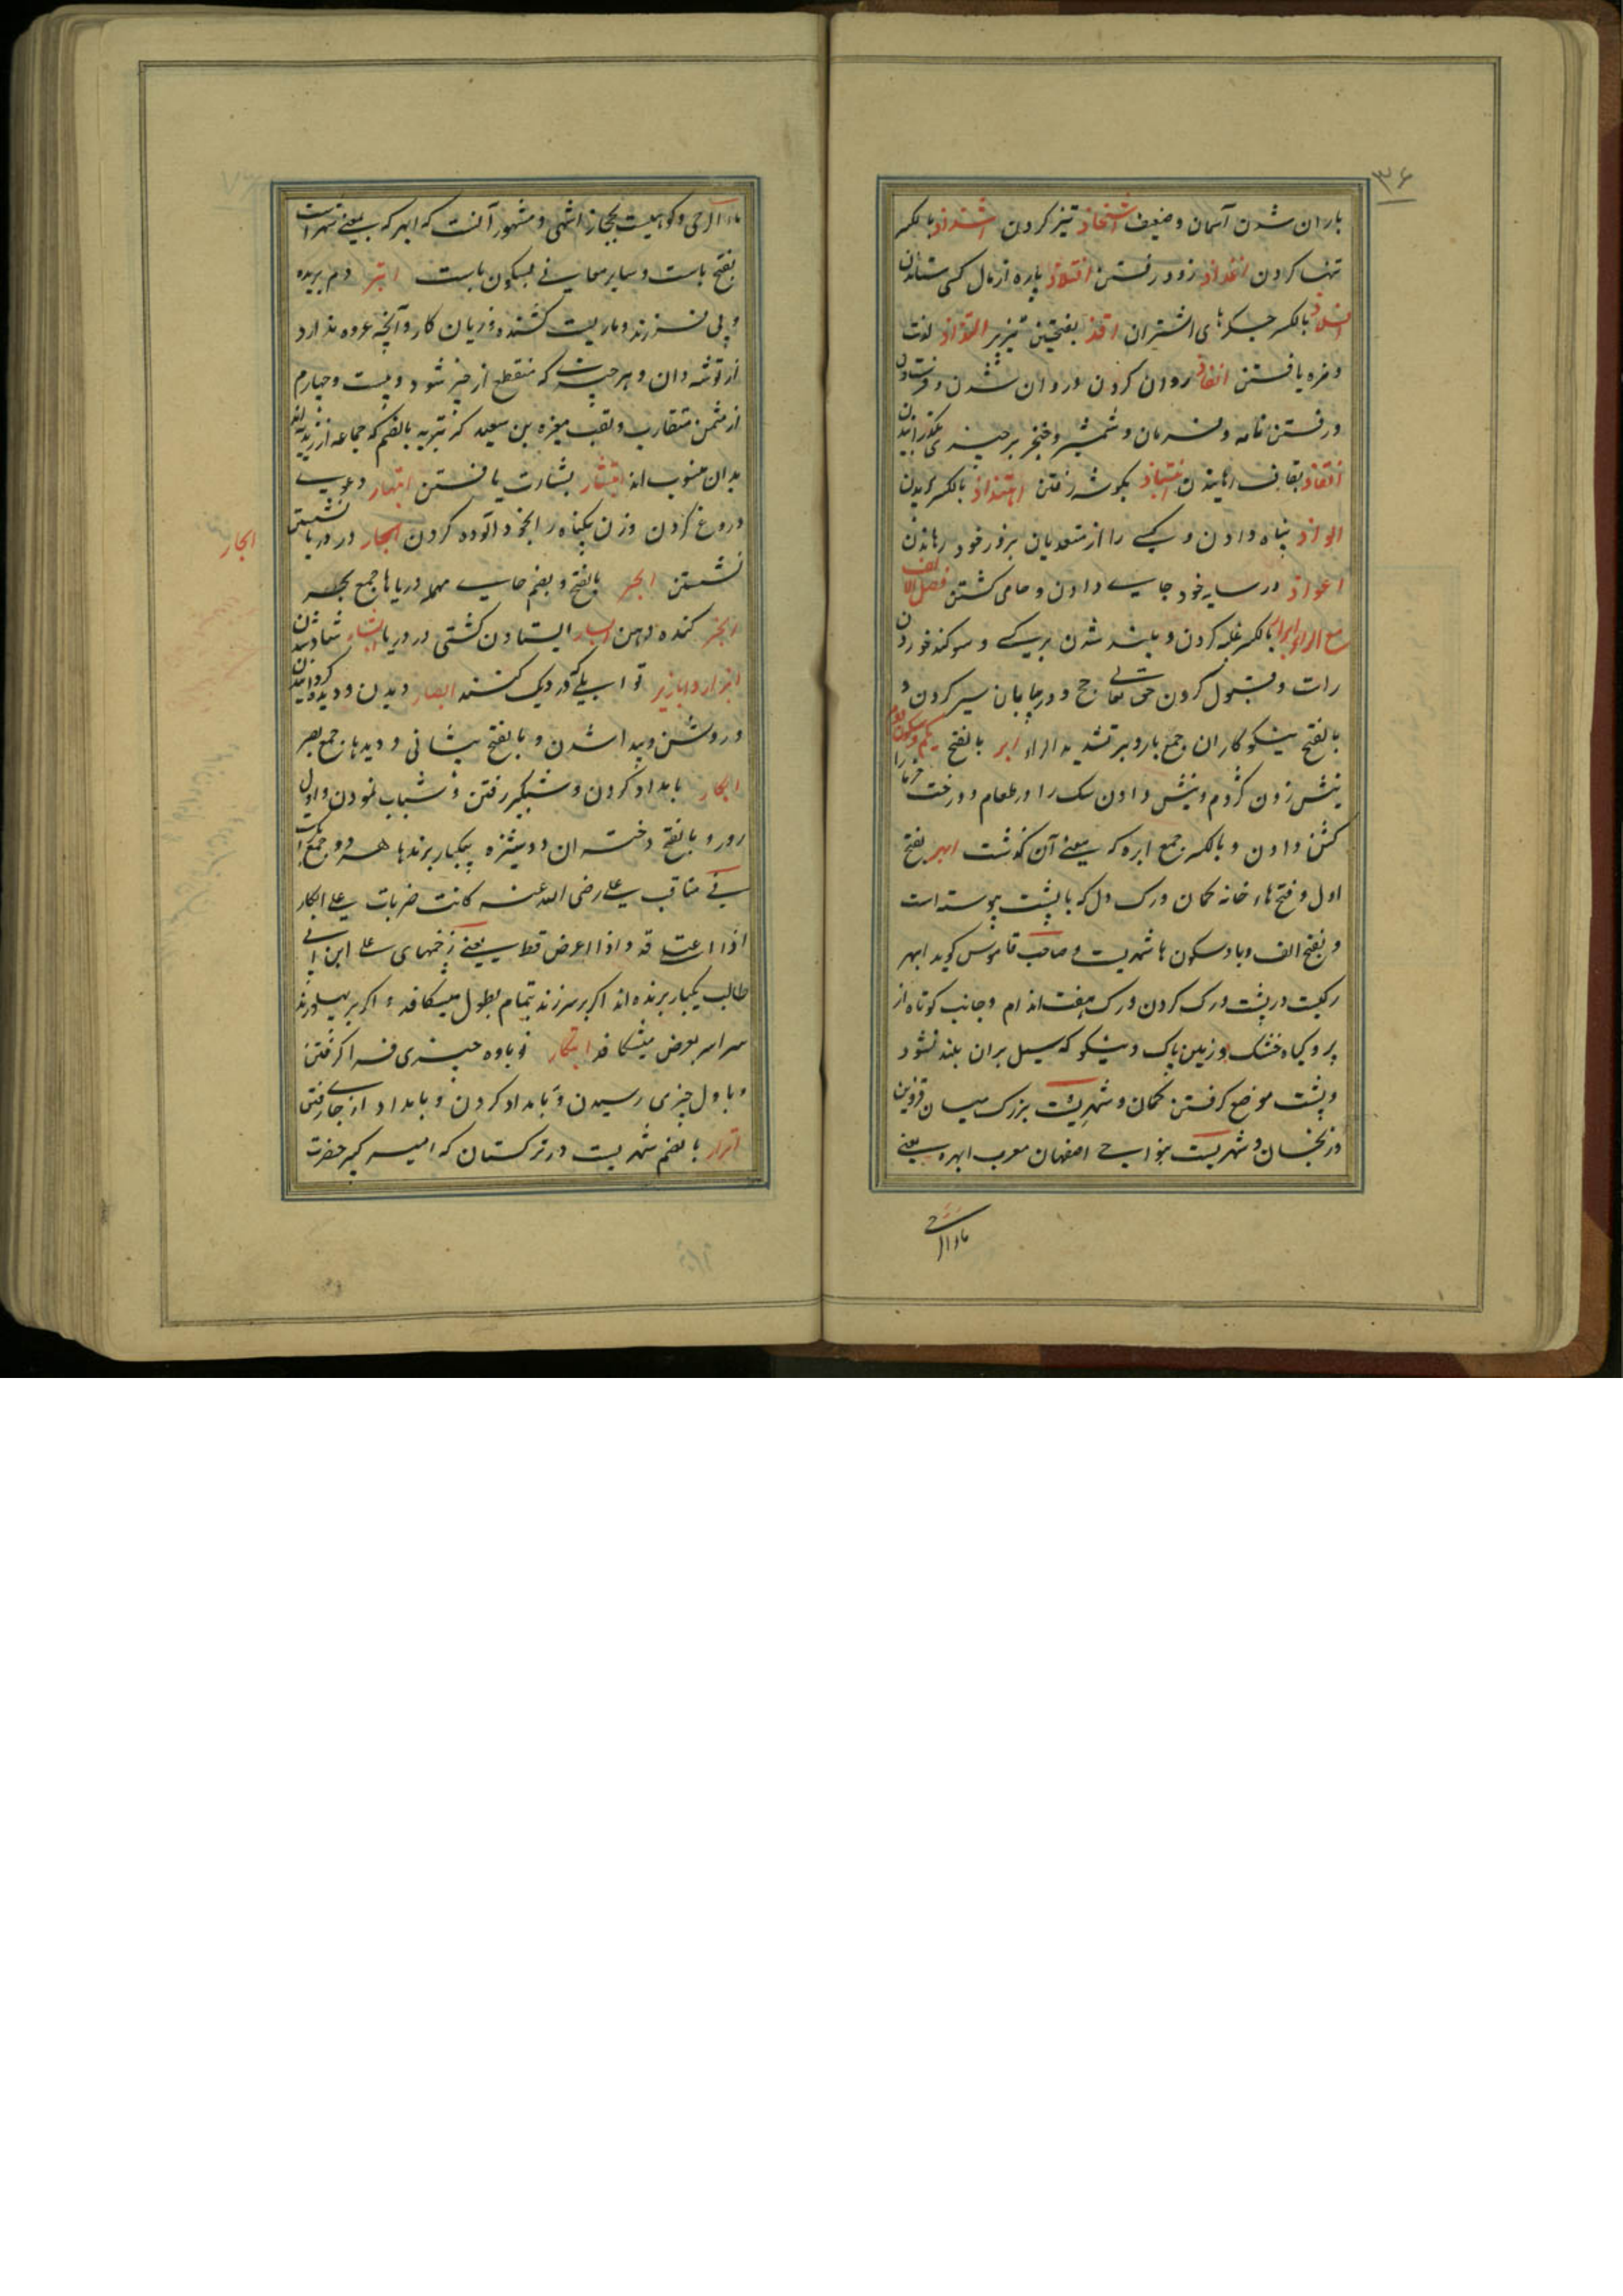 ۳۶
باران شدن آسمان وضعیف اشحاذ تیز کردن اشذاذ بالکسر
تنها کردن اغذاذ زود رفتن افتلاذ پاره از مال کسی ستاندن
افلاذ بالکسر جگرهای اشتران اقذ بفتحتین تیر بی پر التذاذ لذت
ومزه یافتن انفاذ روان کردن وروان شدن وفرستادن
ورفتن نامه وفرمان وشمشیر وخنجر بر چیزی بگذرانیدن
انقاذ بقاف رهانیدن انتباذ بگوشه رفتن اهتذاذ بالکسر بریدن
الواذ پناه دادن وکسی را از متعدیان بزور خود رهاندن
اعواذ در سایه خود جای دادن وحامی گشتن فصل الالف
مع الراء ابرار بالکسر غلبه کردن وبلند شدن بر کسی وسوکند خوردن
راست وقبول کردن حق تعالی حج ودر بیابان سیر کردن و
بالفتح نیکوکاران جمع بار وبر بتشدید الراء ابر بالفتح یکم وسکون دوم
نیش زدن کژدم ونیش دادن سک را در طعام ودرخت خرما را
کشن دادن وبالکسر جمع ابره که بمعنی آن گذشت ابهر بفتح
اول وفتح هاء خانه کمان ورک دل که با پشت پیوسته است
وبفتح الف وبا وسکون ها شهریست وصاحب قاموس کوید ابهر
رکیست در پشت ورک کردن ورک هفت اندام وجانب کوتاه از
پر وکیاه خشک وزمین پاک ونیکو که سیل بران بلند نشود
وپشت موضع کرفتن کمان وشهریست بزرک میان قزوین
وزنجان وشهریست بنواحی اصفهان معرب ابهره یعنی
ماء الرحی
ماء الرحی وکوهیست بحجاز انتهی ومشهور آنست که ابهر که بمعنی شهر است
بفتح باست وسایر معانی بسکون باست ابتر دم بریده
وبی فرزند وماریست کشنده وزیان کار وآنچه عروه ندارد
از توشه دان وهر چیزیست که منقطع از خیر شود وبیست وچهارم
از مثمن متقارب ولقب مغیره بن سعید که بتریه بالضم که جماعه از زیدیه اند
بدان منسوب اند ابتشار بشارت یافتن ابتهار دعوی
دروغ کردن وزن بیکناه را بخود آلوده کردن ابحار در دریا نشستن
ابحار
نشستن ابحر بالفتح وبضم حای مهمله دریاها جمع بحر
ابخر کنده دهن
ابزار وابازیر توابلی که در دیک کنند ابصار دیدن ودیده ور کردانیدن
وروشن وپیدا شدن وبالفتح بینائی ودیدها جمع بصر
ابکار بامداد کردن وشبکیر رفتن وشتاب نمودن واول
روز وبالفتح دختران دوشیزه بیکبار برندها هر دو جمع بکر
فی مناقب علی رضی الله عنه کانت ضربات علی ابکار
اذا اعتلی قد واذا اعرض قط یعنی زخمهای علی ابن ابی
طالب یکبار برنده اند اکر بر سر زند بتمام بطول میشکافد واکر بر پهلو زند
سراسر بعرض میشکافد ابتکار نوباوه چیزی فرا کرفتن
وباول چیزی رسیدن وبامداد کردن وبامداد از جای رفتن
اترار بالضم شهریست در ترکستان که امیر کبیر حضرت